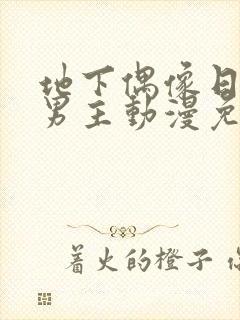 地下偶像日
男主動漫免
着火的橙子